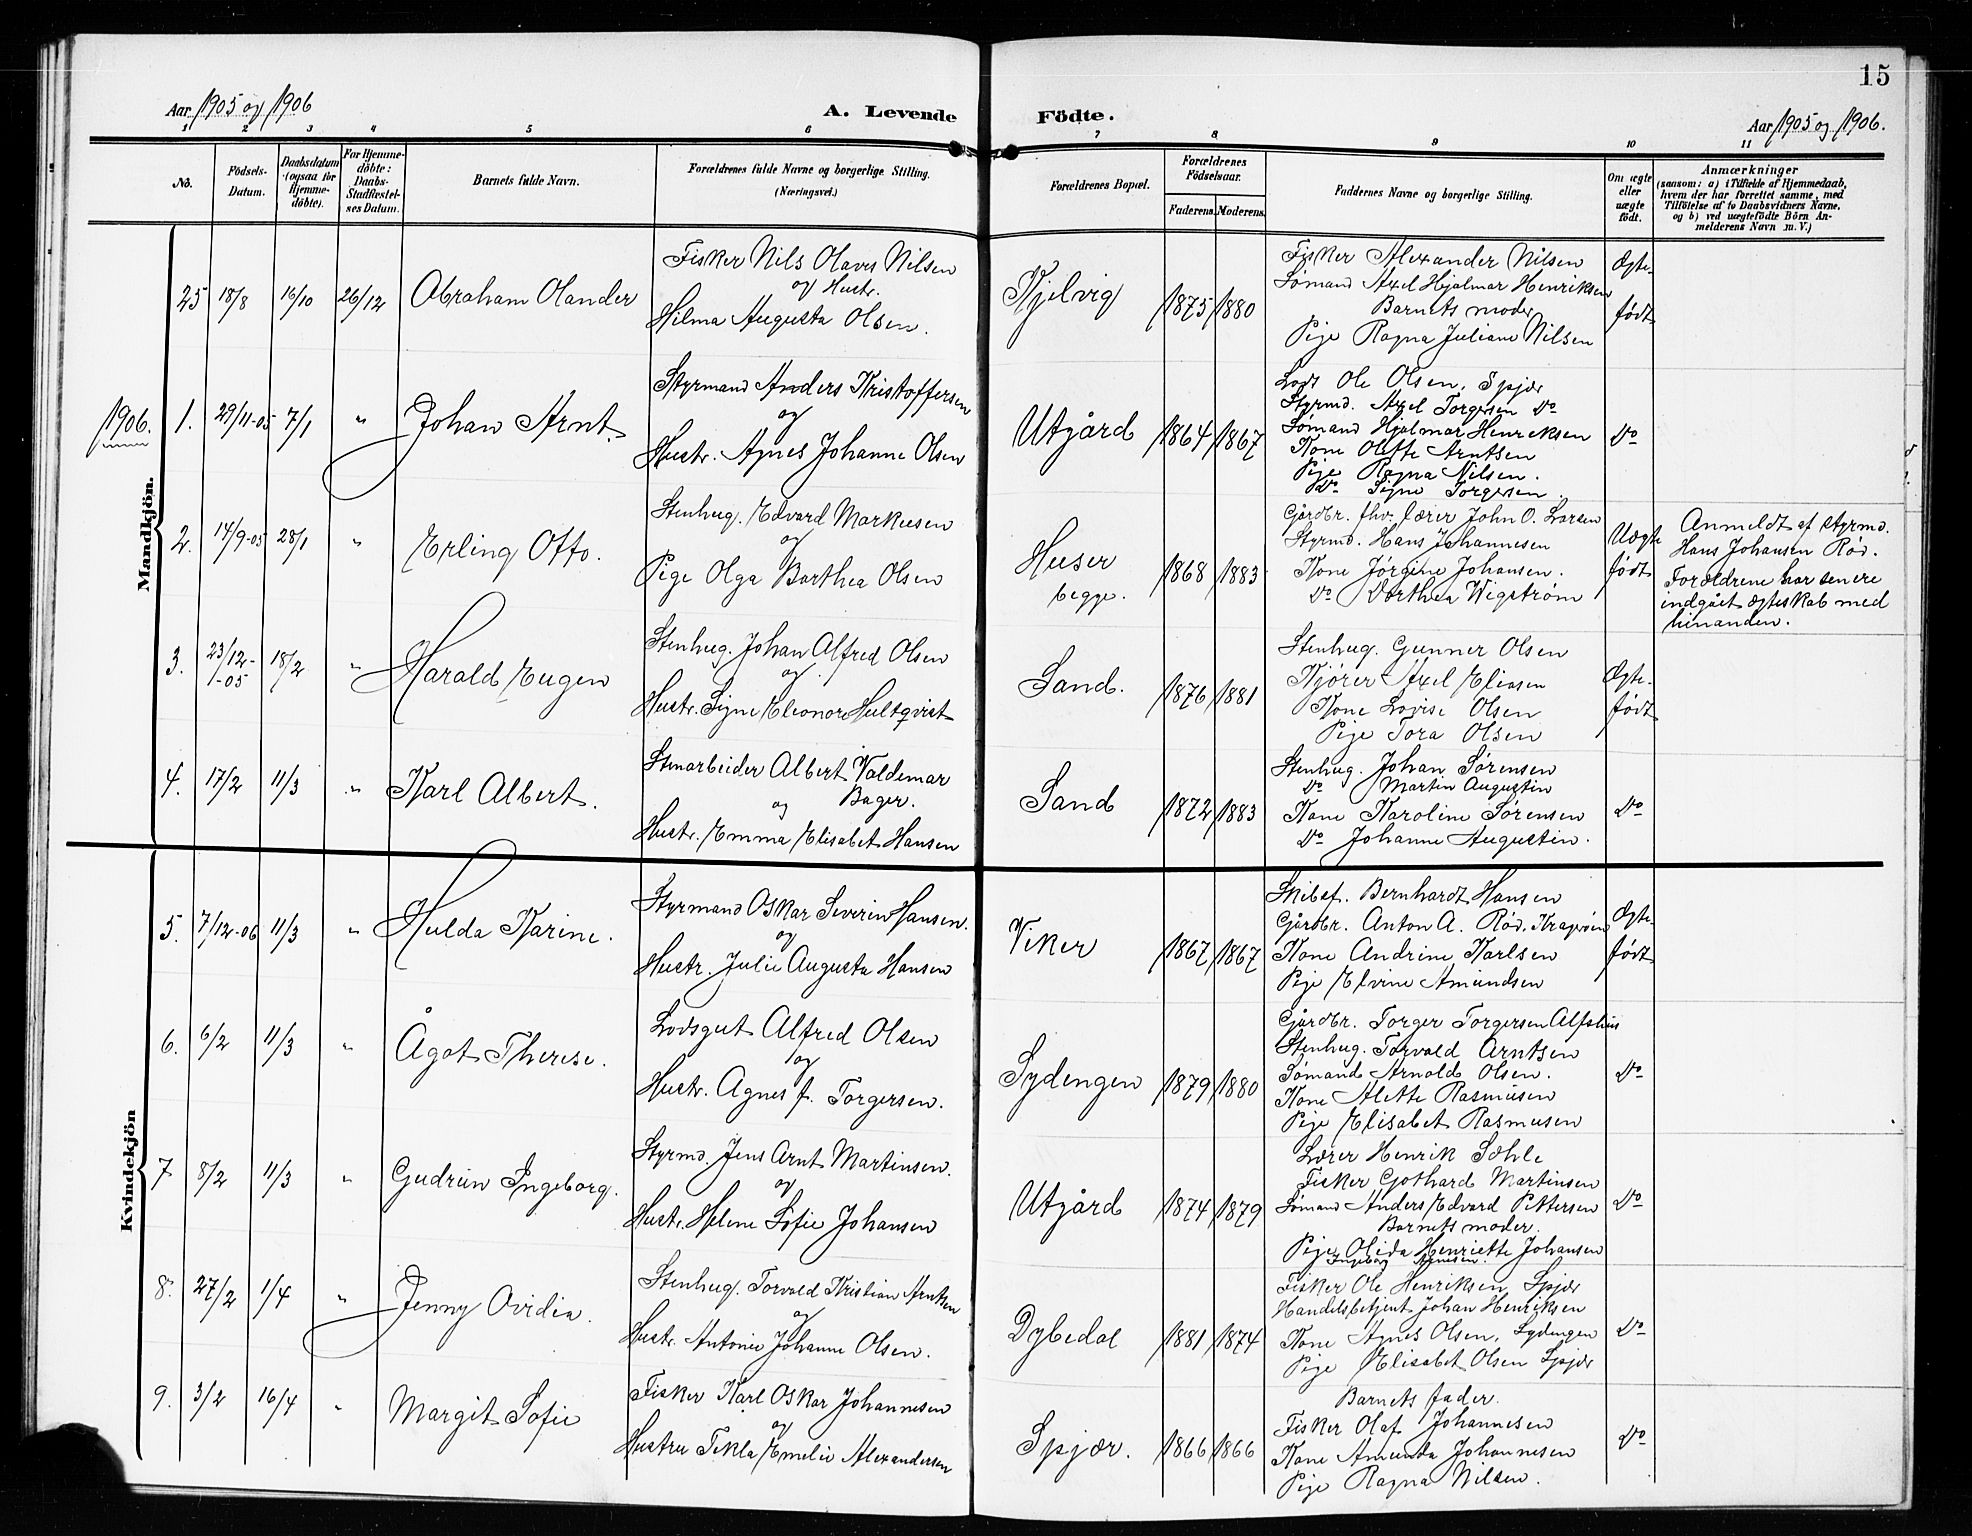 15
Aar 1905 og 1906
A. Levende Födte.
Aar 1905 og 1906.
1 2 3 4 5 6 7 8 9 10 11
No.
Födsels-Datum.
Daabsdatum (ogsaa for Hjemme-döbte).
For Hjemme-döbte: Daabs-Stadfæstel-ses Datum.
Barnets fulde Navn.
Forældrenes fulde Navne og borgerlige Stilling.
(Næringsvei.)
Forældrenes Bopæl.
Forældrenes Födselsaar.
Faderens. Moderens.
Faddernes Navne og borgerlige Stilling.
Om ægte eller uægte födt.
Anmærkninger
(saasom: a) i Tilfælde af Hjemmedaab,
hvem der har forrettet samme, med
Tilföielse af to Daabsvidners Navne,
og b) ved uægtefödte Börn An-
melderens Navn m. V.)
Mandkjön.
25 18/8 16/10 26/12 Abraham Olander
Fisker Nils Olaves Nilsen
og Hustr.
Hilma Augusta Olsen.
Kjelvig 1875 1880
Fisker Alexander Nilsen
Sømand Axel Hjalmar Henriksen
Barnets moder
Pige Ragna Juliane Nilsen
Ægte-
født
1906.
1. 29/11-05 7/1 " Johan Arnt.
Styrmand Anders Kristoffersen
og
Hustr. Agnes Johanne Olsen
Utgård 1864 1867
Lods Ole Olsen, Spjær
Styrmd. Axel Torgersen Do
Sømand Hjalmar Henriksen
Kone Olette Arntsen
Pige Ragna Nilsen.
Do Signe Torgersen.
Do
2. 14/9-05 28/1 " Erling Otto.
Stenhug. Edvard Markusen
og
Pige Olga Barthea Olsen
Huser
begge.
1868 1883
Gårdbr. fhv. lærer John O. Larsen
Styrmd. Hans Johannesen
Kone Jørgine Johansen.
Do Dorthea Wigstrøm
Uægte
født
Anmeldt af styrmd.
Hans Johansen Rød.
Forældrene har senere
indgået ægteskab med
hinanden.
3. 23/12-
-05 18/2 " Harald Eugen
Stenhug. Johan Alfred Olsen
og
Hustr. Signe Eleonore Hultqvist
Sand. 1876 1881
Stenhug. Gunner Olsen
Kjører Axel Eliasen
Kone Lovise Olsen
Pige Tora Olsen
Ægte-
født
4. 17/2 11/3 " Karl Albert.
Stenarbeider Albert Valdemar
og Bager.
Hustr. Emma Elisabet Hansen
Sand 1872 1883
Stenhug. Johan Sørensen
Do Martin Augustin
Kone Karoline Sørensen
Do Johanne Augustin.
Do
Kvindekjön
5. 7/12-06 11/3 " Hulda Karine.
Styrmand Oskar Severin Hansen.
og
Hustr. Julie Augusta Hansen
Viker 1867 1867
Skibsf. Bernhardt Hansen
Gårdbr. Anton A. Rød, Kragerøen
Kone Andrine Karlsen
Pige Elvine Amundsen
Ægte-
født
6. 6/2 11/3 " Ågot Therese.
Lodsgut Alfred Olsen
og
Hustr. Agnes f. Torgersen.
Sydengen 1879 1880
Gårdbr. Torger Torgersen Alfshus
Stenhug. Torvald Arntsen
Sømand Arnold Olsen.
Kone Alette Rasmusen
Pige Elisabet Rasmusen
Do
7 8/2 11/3 " Gudrun Ingeborg.
Styrmd. Jens Arnt Martinsen.
og
Hustr. Helene Sofie Johansen
Utgård 1874 1879
Lærer Henrik Sæhle
Fisker Gothard Martinsen
Sømand Anders Edvard Pettersen
Barnets moder.
Pige Olida Henriette Johansen
Ingeborg
Do
8. 27/2 1/4 " Jenny Ovidia.
Stenhug. Torvald Kristian Arntsen
og
Hustr. Antonie Johanne Olsen.
Dybedal 1881 1874
Fisker Ole Henriksen Spjær
Handelsbetjent Johan Henriksen
Kone Agnes Olsen, Sydengen
Pige Elisabet Olsen Spjær
Do
9. 3/2 16/4 " Margit Sofie
Fisker Karl Oskar Johannesen
og
Hustru Tekla Emelie Alexandersen
Spjær. 1866 1866
Barnets fader.
Fisker Olaf Johannesen
Kone Amunda Johannesen
Pige Ragna Nilsen.
Do